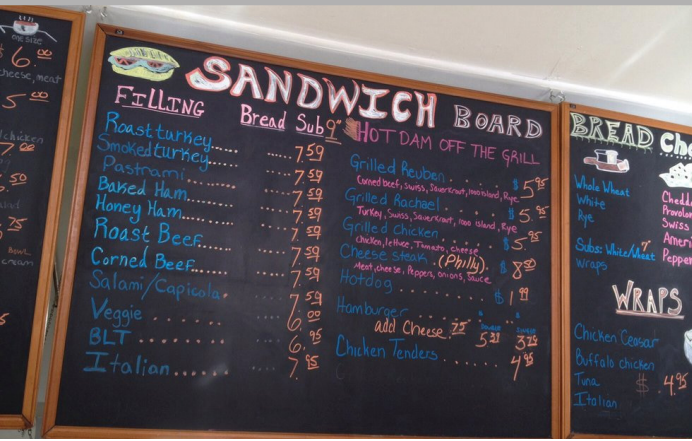 ONE SIZE
$6.00
cheese, meat
5.00
chicken
7.00
.50
.75
BOWL
cream
SANDWICH BOARD
FILLING Bread Sub 9"
Roast turkey..... .....7.59
Smoked turkey..... 7.59
Pastrami....... 7.59
Baked Ham..... 7.59
Honey Ham..... 7.59
Roast Beef..... 7.59
Corned Beef..... 7.59
Salami/Capicola. 7.59
Veggie ...... 6.00
BLT ...... 6.95
Italian ...... 7.95
HOT DAM OFF THE GRILL
Grilled Reuben..... $5.95
Corned beef, Swiss, Sauerkraut, 1000 island, Rye
Grilled Rachael..... $5.95
Turkey, Swiss, Sauerkraut, 1000 island, Rye
Grilled chicken..... $5.95
Chicken, lettuce, Tomato, cheese
Cheese steak.(Philly). $8.50
Meat, cheese, Peppers, onions, sauce
Hotdog ..... $1.99
Hamburger.........
add Cheese .75
Chicken Tenders ...... 4.95
BREAD Che
Whole Wheat
White
Rye
Subs: White/Wheat
Wraps
Chedd
Provolo
Swiss
Ameri
Pepper
WRAPS
Chicken Ceasar
Buffalo chicken
Tuna $4.95
Italian